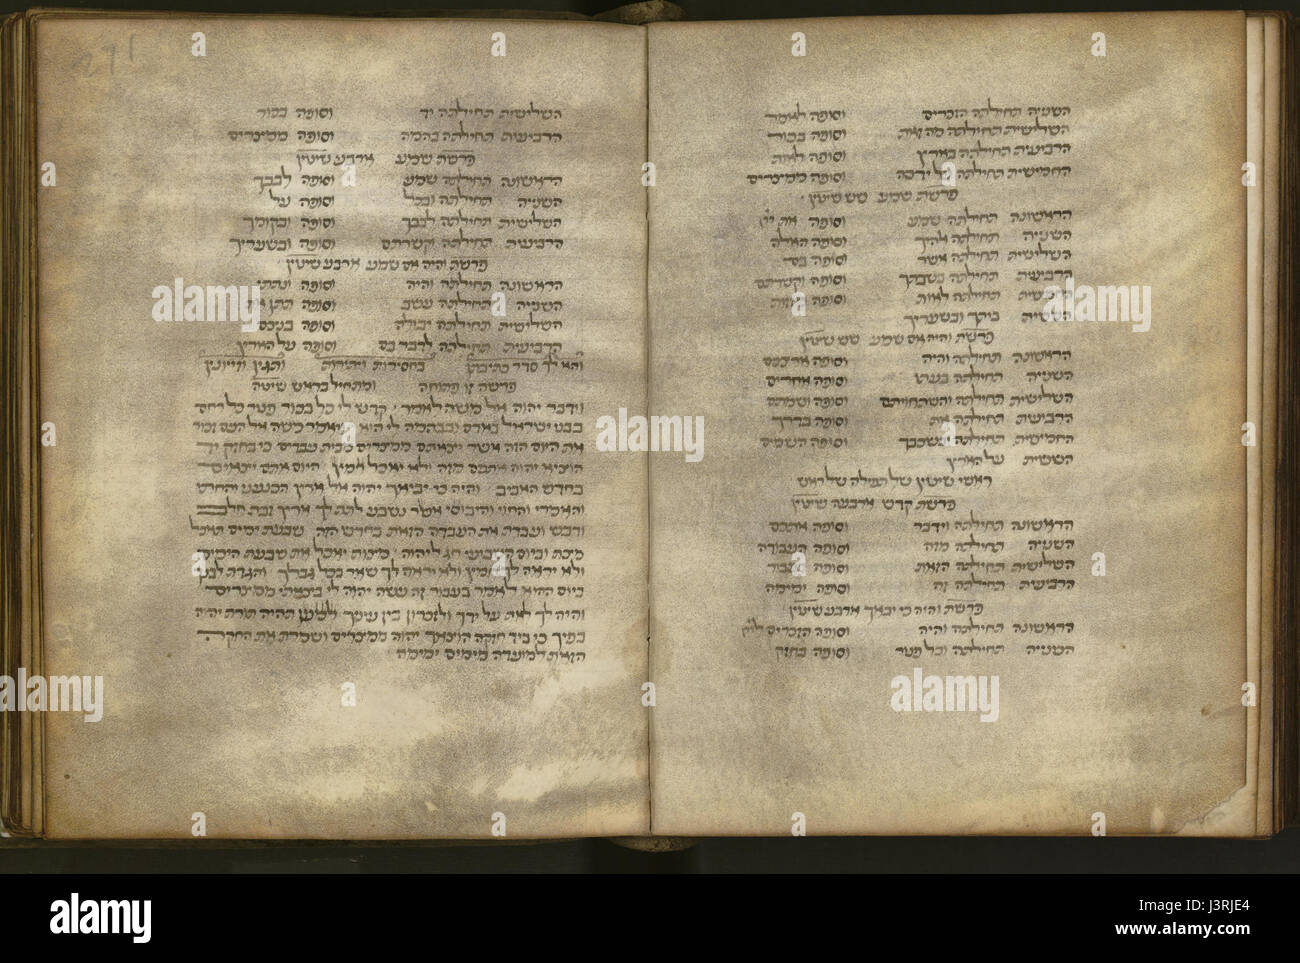 השניה תחילתה הזכרים וסופה לאמר
השלישית תחילתה מה זאת וסופה בכור
הרביעית תחילתה בארץ וסופה לאות
החמישית תחילתה על ידכה וסופה ממצרים
פרשת שמע שש שיטין
הראשונה תחילתה שמע וסופה את יי
השניה תחילתה אלהיך וסופה האלה
השלישית תחילתה אשר וסופה בם
הרביעית תחילתה בשבתך וסופה וקשרתם
החמישית תחילתה לאות וסופה מזוזות
הששית ביתך ובשעריך
פרשת והיה אם שמע שש שיטין
הראשונה תחילתה והיה וסופה ארצכם
השניה תחילתה בעתו וסופה אחרים
השלישית תחילתה והשתחויתם וסופה ושמתם
הרביעית תחילתה את וסופה בדרך
החמישית תחילתה ובשכבך וסופה השמים
הששית על הארץ
ראשי שיטין של תפילה של ראש
פרשת קדש ארבעה שיטין
הראשונה תחילתה וידבר וסופה אתכם
השניה תחילתה מזה וסופה העבודה
השלישית תחילתה הזאת וסופה בעבור
הרביעית תחילתה זה וסופה ימימה
פרשת והיה כי יבאך ארבע שיטין
הראשונה תחילתה והיה וסופה הזכרים ליי
השניה תחילתה וכל פטר וסופה בחזק
271
השלישית תחילתה יד וסופה בכור
הרביעית תחילתה בהמה וסופה ממצרים
פרשת שמע ארבע שיטין
הראשונה תחילתה שמע וסופה לבבך
השניה תחילתה ובכל וסופה על
השלישית תחילתה לבבך וסופה ובקומך
הרביעית תחילתה וקשרתם וסופה ובשעריך
פרשת והיה אם שמע ארבע שיטין
הראשונה תחילתה והיה וסופה ונתתי
השניה תחילתה עשב וסופה תתן את
השלישית תחילתה יבולה וסופה בניכם
הרביעית תחילתה לדבר בם וסופה על הארץ
והא לך סדר כתיבתן בחסירות ויתירות ותגין וזיונין
פרשה זו פתוחה ומתחיל בראש שיטה
וידבר יהוה אל משה לאמר קדש לי כל בכור פטר כל רחם
בבני ישראל באדם ובבהמה לי הוא ויאמר משה אל העם זכור
את היום הזה אשר יצאתם ממצרים מבית עבדים כי בחזק יד
הוציא יהוה אתכם מזה ולא יאכל חמץ היום אתם יצאים
בחדש האביב והיה כי יביאך יהוה אל ארץ הכנעני והחתי
והאמרי והחוי והיבוסי אשר נשבע לאבתיך לתת לך ארץ זבת חלב
ודבש ועבדת את העבדה הזאת בחדש הזה שבעת ימים תאכל
מצת וביום השביעי חג ליהוה מצות יאכל את שבעת הימים
ולא יראה לך חמץ ולא יראה לך שאר בכל גבלך והגדת לבנך
ביום ההוא לאמר בעבור זה עשה יהוה לי בצאתי ממצרים
והיה לך לאות על ידך ולזכרון בין עיניך למען תהיה תורת יהוה
בפיך כי ביד חזקה הוצאך יהוה ממצרים ושמרת את החקה
הזאת למועדה מימים ימימה
alamy
alamy
alamy
alamy
alamy
alamy
alamy
alamy
Image ID: J3RJE4
www.alamy.com